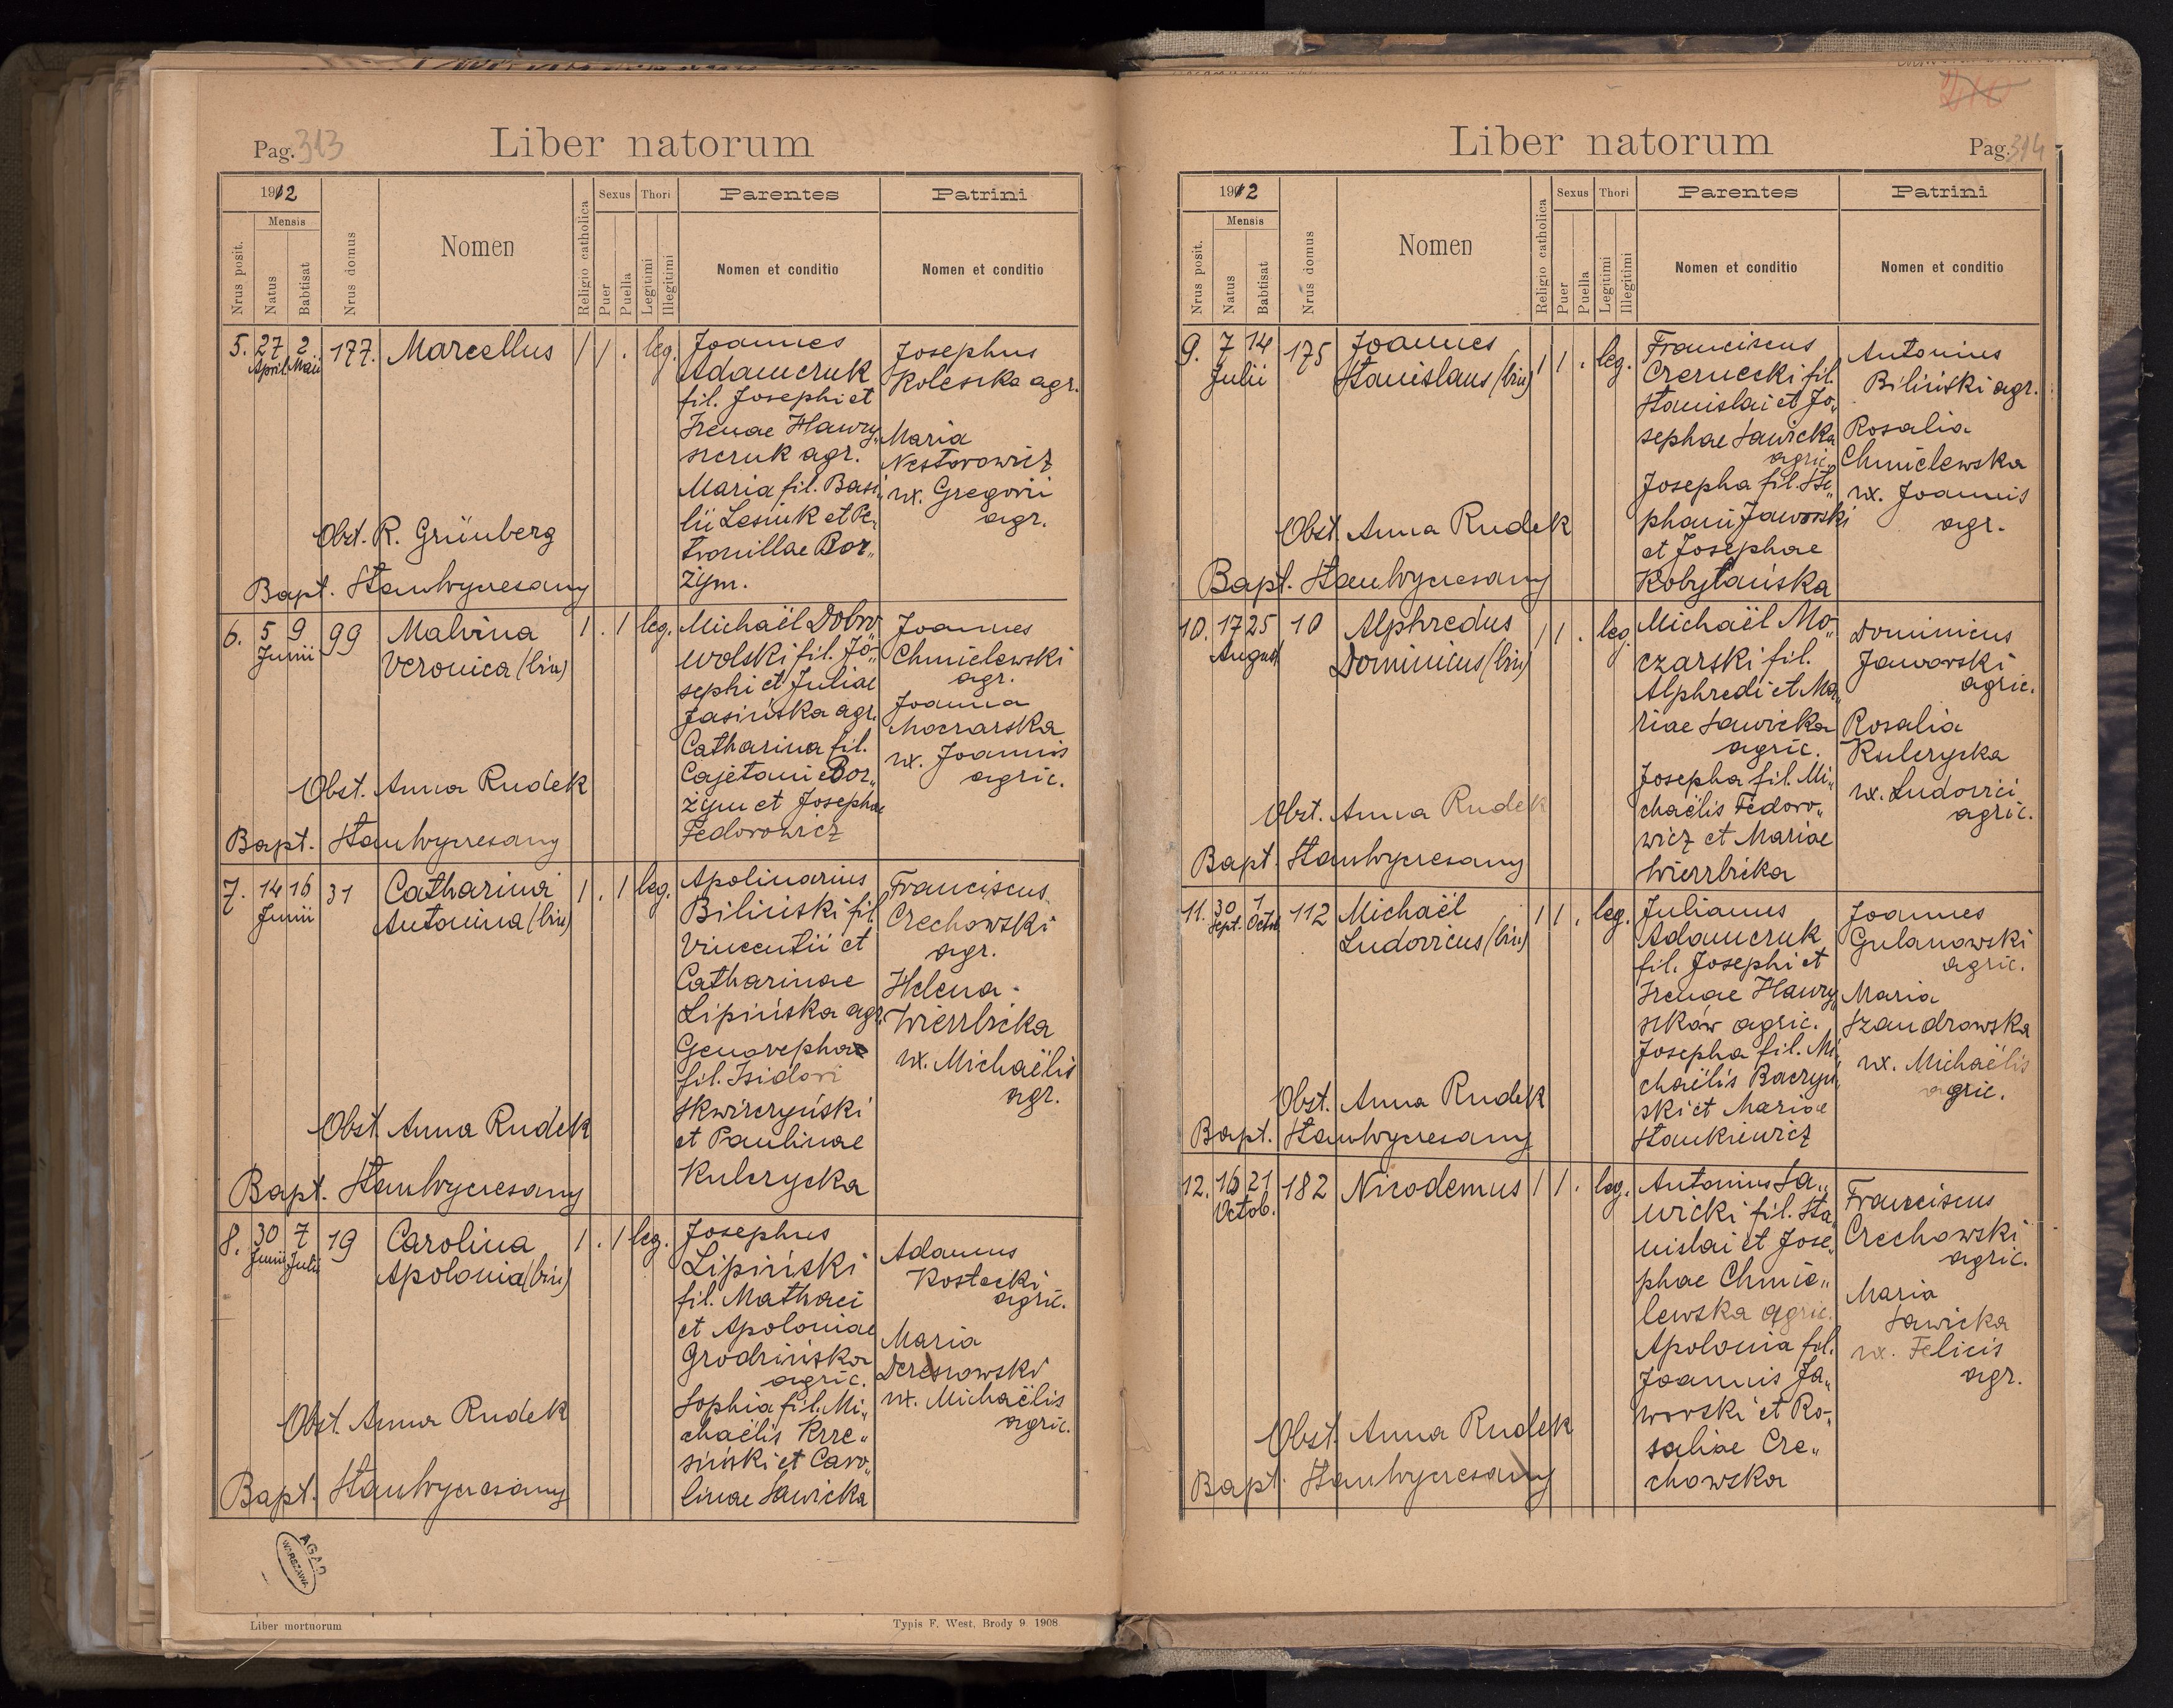 Pag. 313
Liber natorum
1912
Mensis
Nrus posit.
Natus
Babtisat
Nrus domus
Nomen
Religio catholica
Sexus
Puer
Puella
Thori
Legitimi
Illegitimi
Parentes
Nomen et conditio
Patrini
Nomen et conditio
5. 27 April 2 Maii 177. Marcellus 1 1 . leg.
Joannes
Adamczuk
fil. Josephi et
Irenae Hawry„
szczuk agr.
Maria fil. Basi„
lii Lesiuk et Pe„
tronillae Bor„
żym.
Josephus
Koleszka agr.
Maria
Nestorowicz
ux. Gregorii
agr.
Obst. R. Grünberg
Bapt. Stan Wyczesany
6. 5 9 Junii 99 Malvina 1 . 1 leg.
Veronica (bin)
Michaël Dobro„
wolski fil. Jo„
sephi et Juliae
Jasińska agr.
Catharina fil.
Cajetani Bor„
żym et Josephae
Fedorowicz
Joannes
Chmielewski
agr.
Joanna
Moczarska
ux. Joannis
agric.
Obst. Anna Rudek
Bapt. Stan Wyczesany
7. 14 16 Junii 31 Catharina 1 . 1 leg.
Antonina (bin)
Apolinarius
Biliński fil.
Vincentii et
Catharinae
Lipińska agr.
Genovepha
fil. Isidori
Skwirczyński
et Paulinae
Kulczycka
Franciscus
Czechowski
agr.
Helena
Wierzbicka
ux. Michaëlis
agr.
Obst. Anna Rudek
Bapt. Stan Wyczesany
8. 30 Junii 7 Julii 19 Carolina 1 . 1 leg.
Apolonia (bin)
Josephus
Lipiński
fil. Mathaei
et Apoloniae
Grodzińska
agric.
Sophia fil. Mi„
chaëlis Krze„
siński et Caro„
linae Sawicka
Adamus
Kostecki
agric.
Maria
Derenowski
ux. Michaëlis
agric.
Obst. Anna Rudek
Bapt. Stan Wyczesany
AGAD
WARSZAWA
Liber mortuorum
Typis F. West, Brody 9. 1908
210
Liber natorum
Pag. 314
1912
Mensis
Nrus posit.
Natus
Babtisat
Nrus domus
Nomen
Religio catholica
Sexus
Puer
Puella
Thori
Legitimi
Illegitimi
Parentes
Nomen et conditio
Patrini
Nomen et conditio
9. 7 14 Julii 175 Joannes 1 1 . leg.
Stanislaus (bin)
Franciscus
Czernecki fil.
Stanislai et Jo„
sephae Sawicka
agric.
Josepha fil. Ste„
phani Jaworski
et Josephae
Kobylańska
Antonius
Biliński agr.
Rosalia
Chmielewska
ux. Joannis
agr.
Obst. Anna Rudek
Bapt. Stan Wyczesany
10. 17 25 August 10 Alphredus 1 1 . leg.
Dominicus (bin)
Michaël Mo„
czarski fil.
Alphredi et Ma„
riae Sawicka
agric.
Josepha fil. Mi„
chaëlis Fedoro„
wicz et Mariae
Wierzbicka
Dominicus
Jaworski
agric.
Rosalia
Kulczycka
ux. Ludovici
agric.
Obst. Anna Rudek
Bapt. Stan Wyczesany
11. 30 Sept. 1 Octob. 112 Michaël 1 1 . leg.
Ludovicus (bin)
Julianus
Adamczuk
fil. Josephi et
Irenae Hawry„
szków agric.
Josepha fil. Mi„
chaëlis Baczyń„
ski et Mariae
Stankiewicz
Joannes
Gulanowski
agric.
Maria
Szandrowska
ux. Michaëlis
agric.
Obst. Anna Rudek
Bapt. Stan Wyczesany
12. 16 21 Octob. 182 Nicodemus 1 1 . leg.
Antonius Sa„
wicki fil. Sta„
nislai et Jose„
phae Chmie„
lewska agric.
Apolonia fil.
Joannis Ja„
worski et Ro„
saliae Cze„
chowska
Franciscus
Czechowski
agric.
Maria
Sawicka
ux. Felicis
agr.
Obst. Anna Rudek
Bapt. Stan Wyczesany